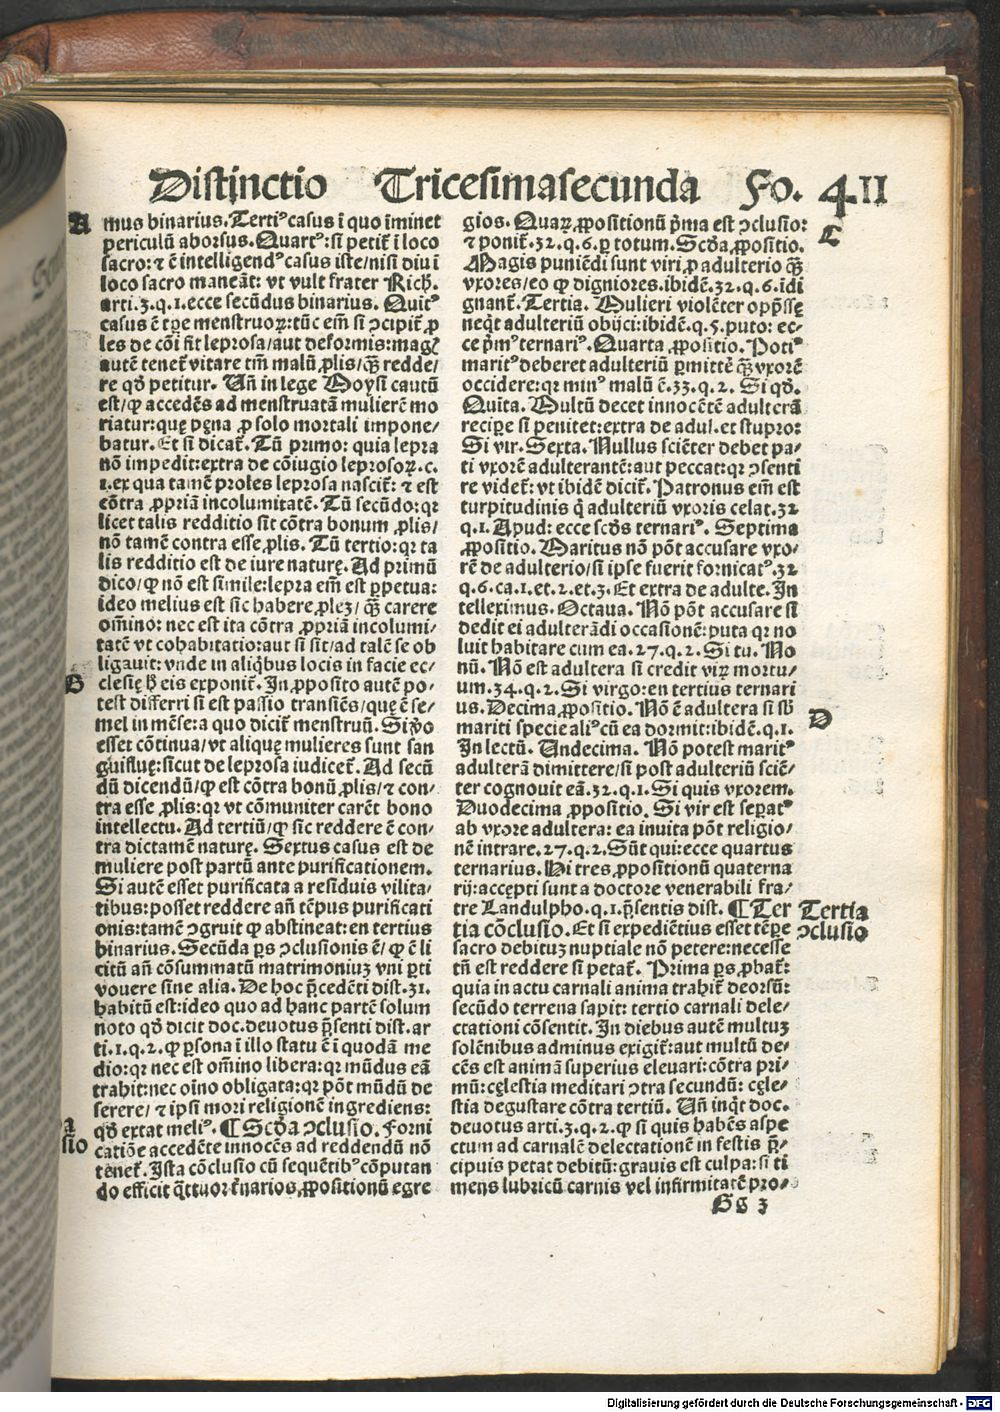 Distinctio Tricesimasecunda Fo. 411
A mus binarius. Tertiꝰ casus ĩ quo ĩminet
periculũ aborsus. Quartꝰ: si petit̃ ĩ loco
sacro: ⁊ ẽ intelligendꝰ casus iste/ nisi diu ĩ
loco sacro maneãt: vt vult frater Rich.
arti. 3. q. 1. ecce secũdus binarius. Quitꝰ
casus ẽ tp̃e menstruoꝝ: tũc em̃ si ↄcipit̃ ꝓ
les de cõi fit leprosa/ aut deformis: mag̃
autẽ tenet̃ vitare tm̃ malũ ꝓlis/ q̃ꝫ redde/
re qð petitur. Uñ in lege Moysi cautũ
est/ ꝙ accedẽs ad menstruatã mulierẽ mo
riatur: quę pęna ꝓ solo mortali impone/
batur. Et si dicat̃. Tũ primo: quia lepra
nõ impedit: extra de cõiugio leprosoꝝ. c.
1. ex qua tamẽ proles leprosa nascit̃: ⁊ est
cõtra ꝓpriã incolumitatẽ. Tũ secũdo: qꝛ
licet talis redditio sit cõtra bonum ꝓlis/
nõ tamẽ contra esse ꝓlis. Tũ tertio: qꝛ ta
lis redditio est de iure naturę. Ad primũ
dico/ ꝙ nõ est simile: lepra em̃ est ꝑpetua:
ideo melius est sic habere ꝓleꝫ/ q̃ꝫ carere
om̃ino: nec est ita cõtra ꝓpriã incolumi/
tatẽ vt cohabitatio: aut si sit/ ad talẽ se ob
ligauit: vnde in aliq̃bus locis in facie ec/
B clesię h̃ eis exponit̃. In ꝓposito autẽ po/
test differri si est passio transiẽs/ quę ẽ se/
mel in mẽse: a quo dicit̃ menstruũ. Si ṽo
esset cõtinua/ vt alique mulieres sunt san
guifluę: sicut de leprosa iudicet̃. Ad secũ
dũ dicendũ/ ꝙ est cõtra bonũ ꝓlis/ ⁊ con/
tra esse ꝓlis: qꝛ vt cõmuniter carẽt bono
intellectu. Ad tertiũ/ ꝙ sic reddere ẽ con/
tra dictamẽ naturę. Sextus casus est de
muliere post partũ ante purificationem.
Si autẽ esset purificata a residuis vilita/
tibus: posset reddere añ tẽpus purificati
onis: tamẽ ↄgruit ꝙ abstineat: en tertius
binarius. Secũda ꝑs ↄclusionis ẽ/ ꝙ ẽ li
citũ añ cõsummatũ matrimoniuꝫ vni ꝑti
vouere sine alia. De hoc p̃cedẽti dist. 31.
habitũ est: ideo quo ad hanc partẽ solum
noto qð dicit doc. deuotus p̃senti dist. ar
ti. 1. q. 2. ꝙ ꝑsona ĩ illo statu ẽ ĩ quodã me
dio: qꝛ nec est om̃ino libera: qꝛ mũdus eã
trahit: nec oĩno obligata: qꝛ põt mũdũ de
serere/ ⁊ ipsi mori religionẽ ingrediens:
qð extat meliꝰ. ¶ Scð̃a ↄclusio. Forni
sio catiõe accedẽte innocẽs ad reddendũ nõ
tenet̃. Ista cõclusio cũ sequẽtibꝰ cõputan
do efficit q̃ttuor t̃narios ꝓpositionũ egre
gios. Quaꝝ ꝓpositionũ p̃ma est ↄclusio:
⁊ ponit̃. 32. q. 6. ꝑ totum. Scð̃a ꝓpositio. C
Magis puniẽdi sunt viri ꝓ adulterio q̃ꝫ
vxores/ eo ꝙ digniores. ibidẽ. 32. q. 6. ĩdi
gnant̃. Tertia. Mulieri violẽter opp̃ssę
neq̃t adulteriũ obijci: ibidẽ. q. 5. puto: ec/
ce p̃mꝰ ternariꝰ. Quarta ꝓpositio. Potiꝰ
maritꝰ deberet adulteriũ ꝑmittẽ q̃ꝫ vxorẽ
occidere: qꝛ minꝰ malũ ẽ. 33. q. 2. Si qð.
Quĩta. Multũ decet innocẽtẽ adulterã
recipe si penitet: extra de adul. et stupro:
Si vir. Sexta. Nullus sciẽter debet pa/
ti vxorẽ adulterantẽ: aut peccat: qꝛ ↄsenti
re videt̃: vt ibidẽ dicit̃. Patronus em̃ est
turpitudinis q̃ adulteriũ vxoris celat. 32
q. 1. Apud: ecce scð̃s ternariꝰ. Septima
ꝓpositio. Maritus nõ põt accusare vxo/
rẽ de adulterio/ si ipse fuerit fornicatꝰ. 32
q. 6. ca. 1. et. 2. et. 3. Et extra de adulte. In
telleximus. Octaua. Nõ põt accusare si
dedit ei adulterãdi occasionẽ: puta qꝛ no
luit habitare cum ea. 27. q. 2. Si tu. No
nũ. Nõ est adultera si credit viꝝ mortu/
um. 34. q. 2. Si virgo: en tertius ternari
us. Decima ꝓpositio. Nõ ẽ adultera si sb̃ D
mariti specie aliꝰ cũ ea dormit: ibidẽ. q. 1.
In lectũ. Undecima. Nõ potest maritꝰ
adulterã dimittere/ si post adulteriũ sciẽ/
ter cognouit eã. 32. q. 1. Si quis vxorem.
Duodecima ꝓpositio. Si vir est seꝑatꝰ
ab vxore adultera: ea inuita põt religio/
nẽ intrare. 27. q. 2. Sũt qui: ecce quartus
ternarius. Hi tres ꝓpositionũ quaterna
rij: accepti sunt a doctore venerabili fra/
tre Landulpho. q. 1. p̃sentis dist. ¶ Ter Tertia
tia cõclusio. Et si expediẽtius esset tẽpe ↄclusio
sacro debituꝫ nuptiale nõ petere: necesse
tñ est reddere si petat̃. Prima ꝑs ꝓbat̃:
quia in actu carnali anima trahit̃ deorsũ:
secũdo terrena sapit: tertio carnali dele/
ctationi cõsentit. In diebus autẽ multuꝫ
solẽnibus adminus exigit̃: aut multũ de/
cẽs est animã superius eleuari: cõtra pri/
mũ: cęlestia meditari ↄtra secundũ: cęle/
stia degustare cõtra tertiũ. Uñ inq̃t doc.
deuotus arti. 3. q. 2. ꝙ si quis habẽs aspe
ctum ad carnalẽ delectationẽ in festis p̃/
cipuis petat debitũ: grauis est culpa: si ti
mens lubricũ carnis vel infirmitatẽ pro/
Gg 3
Digitalisierung gefördert durch die Deutsche Forschungsgemeinschaft - DFG